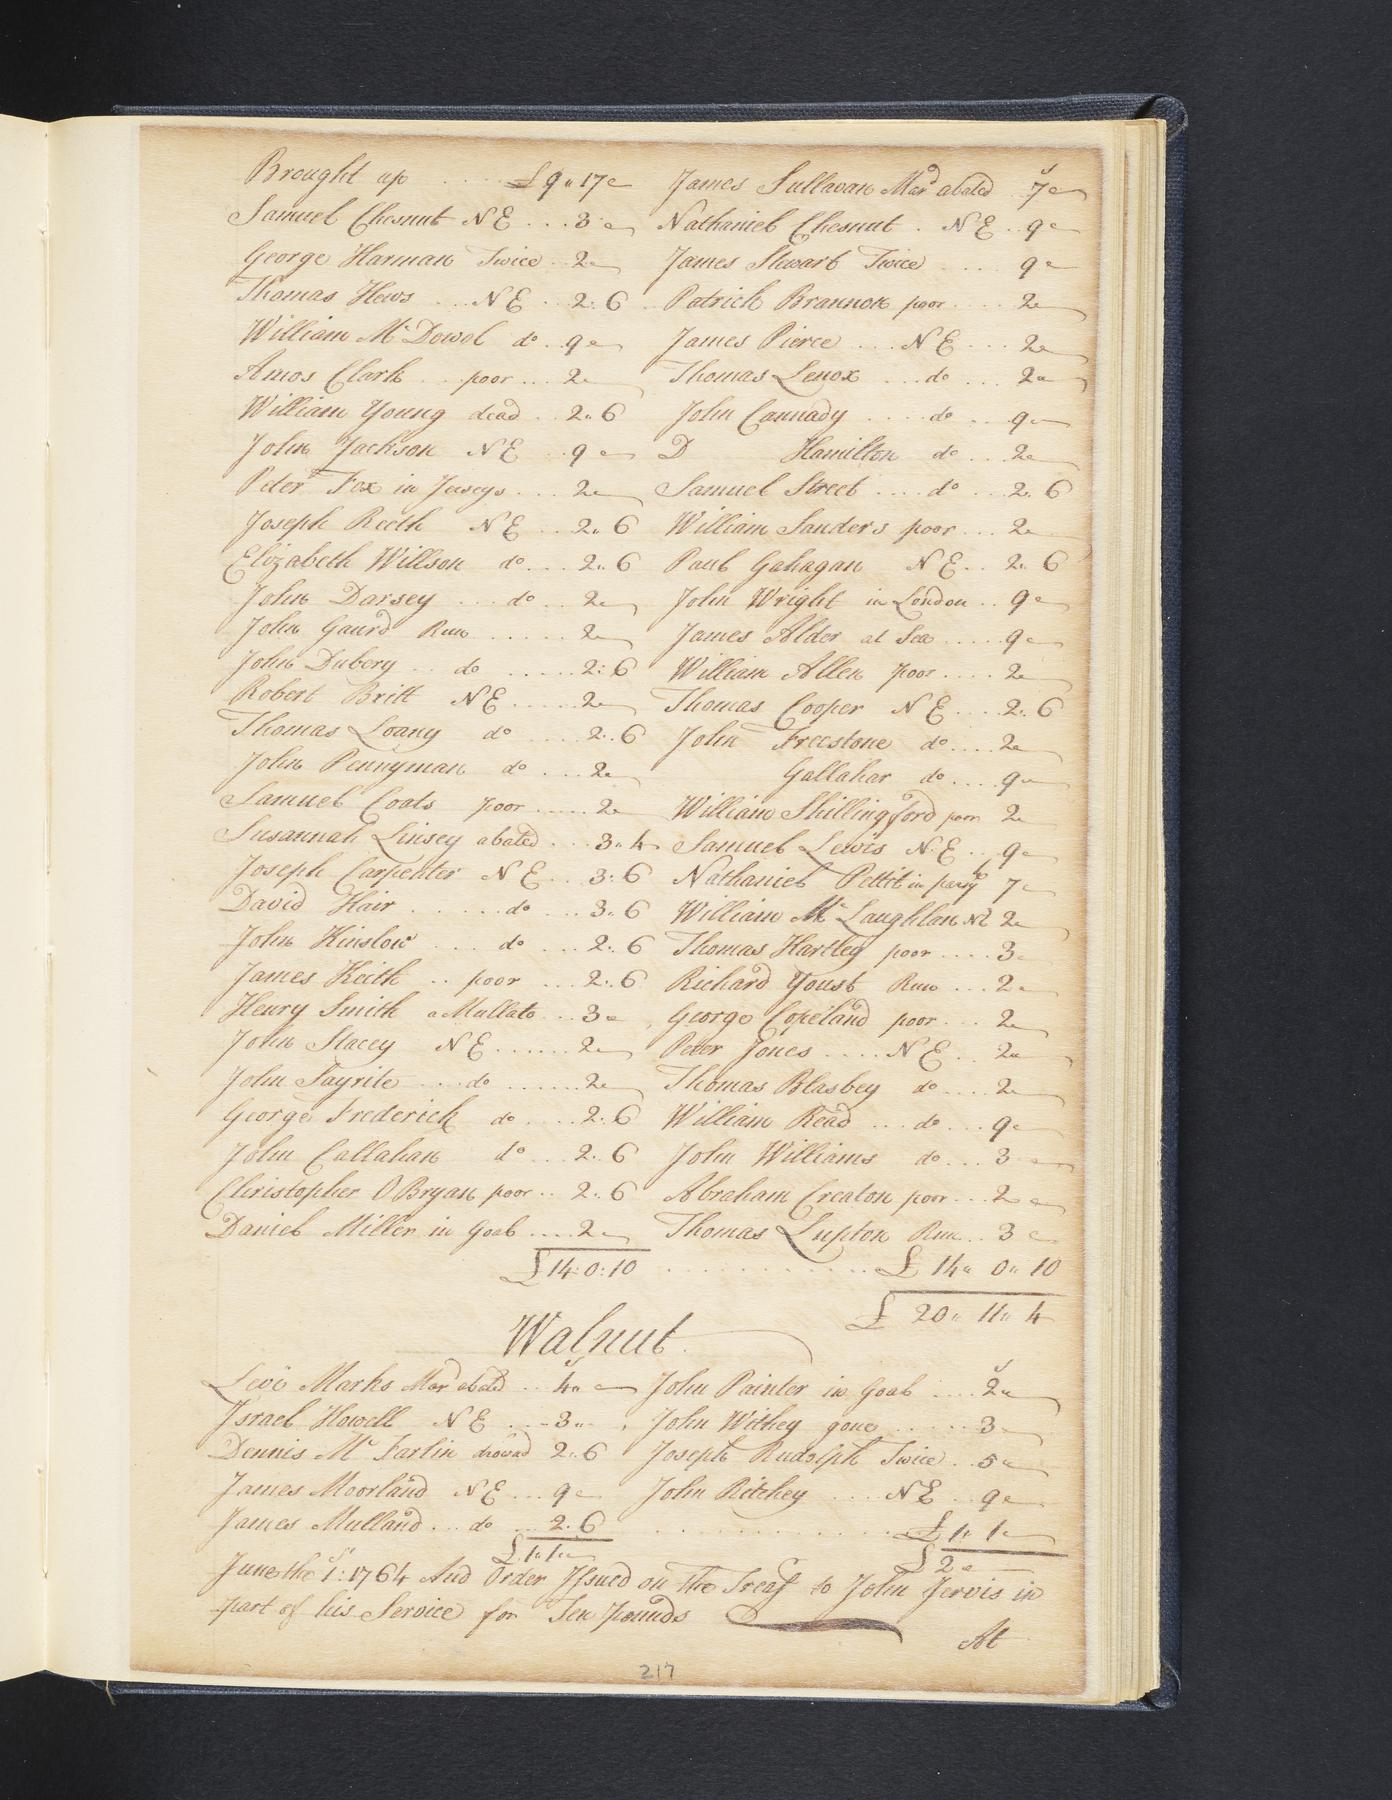 Brought up ..... £9"17" James Sullavan Mard abated 7"
Samuel Chesnut NE ... 3" Nathaniel Chesnut . NE .. 9"
George Harman Twice .. 2" James Stewart Twice .... 9"
Thomas Hews ... NE .. 2:6 Patrick Brannon poor .... 2"
William McDowel do .. 9" James Pierce ... NE ... 2"
Amos Clark ... poor ... 2" Thomas Lenox ... do ... 2"
William Young dead .. 2"6 John Cannady .... do .. 9"
John Jackson NE .. 9" D Hamilton do ... 2"
Peter Fox in Jerseys ... 2" Samuel Street .... do ... 2:6
Joseph Reeth NE .. 2"6 William Sanders poor ... 2"
Elizabeth Willson do ... 2"6 Paul Gahagan NE .. 2"6
John Darsey ... do ... 2" John Wright in London .. 9"
John Gaurd Run ...... 2" James Alder at Sea ..... 9"
John Dubery .. do ..... 2:6 William Allen poor .... 2"
Robert Britt NE ..... 2" Thomas Cooper NE ... 2:6
Thomas Loany do .... 2:6 John Freestone do .... 2"
John Pennyman do .... 2" Gallahar do .... 9"
Samuel Coats poor ..... 2" William Shillingford poor 2"
Susannah Linsey abated ... 3"4 Samuel Lewis NE .. 9"
Joseph Carpenter NE .. 3:6 Nathaniel Pettit in 7"
David Hair ...... do ... 3"6 William McLaughlan NE 2"
John Kinslow .... do .... 2:6 Thomas Hartley poor .... 3"
James Keith .. poor ... 2:6 Richard Youst Run ... 2"
Henry Smith a Mullato ... 3" George Copeland poor ... 2"
John Stacey NE ...... 2" Peter Jones .... NE .. 2"
John Tayrite .... do ...... 2" Thomas Blasbey do ... 2"
George Frederick do .... 2:6 William Read ... do ... 9"
John Callahan do ... 2:6 John Williams do ... 3"
Christopher OBryan poor .. 2"6 Abraham Creaton poor ... 2"
Daniel Miller in Goal ..... 2" Thomas Lupton Run .. 3"
£14:0:10 ............ £14"0"10
£20"11"4
Walnut
Levi Marks Mard abated ... 4" John Painter in Goal .... 2"
Israel Howell NE ... 3" John Withey gone ...... 3"
Dennis McFarlin 2"6 Joseph Rudolph Twice .. 5"
James Moorland NE ... 9" John Ritchey .... NE .. 9"
James Mulland ... do ... 2:6 ............ £1"1"
£1"1" £2"
June the 1st: 1764 And Order Issued on the Treasr to John Jervis in
part of his Service for Ten pounds
At
217